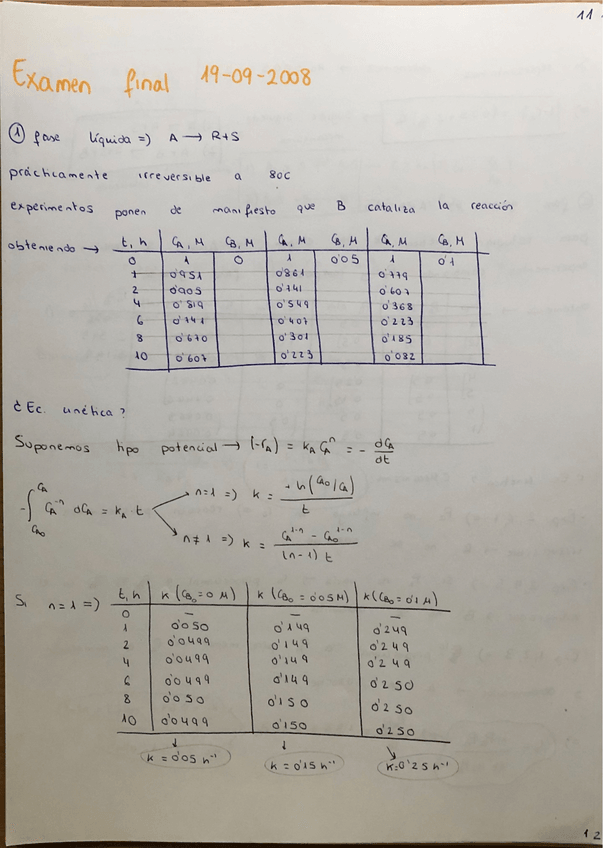 11
Examen final 19-09-2008
① fase líquida => A → R+S
prácticamente irreversible a 80C
experimentos ponen de manifiesto que B cataliza la reacción
obteniendo → t, h | CA, M | CB, M | CA, M | CB, M | CA, M | CB, M
0 | 1 | 0 | 1 | 0'05 | 1 | 0'1
1 | 0'951 | | 0'861 | | 0'779
2 | 0'905 | | 0'741 | | 0'607
4 | 0'819 | | 0'549 | | 0'368
6 | 0'741 | | 0'407 | | 0'223
8 | 0'670 | | 0'301 | | 0'185
10 | 0'607 | | 0'223 | | 0'082
¿Ec. cinética?
Suponemos tipo potencial → (-rA) = kA CA^n = - dCA/dt
-∫_CA0^CA CA^-n dCA = kA · t
n=1 => k = +ln(CA0/CA) / t
n≠1 => k = (CA^1-n - CA0^1-n) / ((n-1) t)
Si n=1 => t, h | k (CB0=0 M) | k (CB0=0'05M) | k (CB0=0'1 M)
0 | — | — | —
1 | 0'050 | 0'149 | 0'249
2 | 0'0499 | 0'149 | 0'249
4 | 0'0499 | 0'149 | 0'249
6 | 0'0499 | 0'149 | 0'250
8 | 0'050 | 0'150 | 0'250
10 | 0'0499 | 0'150 | 0'250
↓ ↓ ↘
k = 0'05 h⁻¹ k = 0'15 h⁻¹ k = 0'25 h⁻¹
12